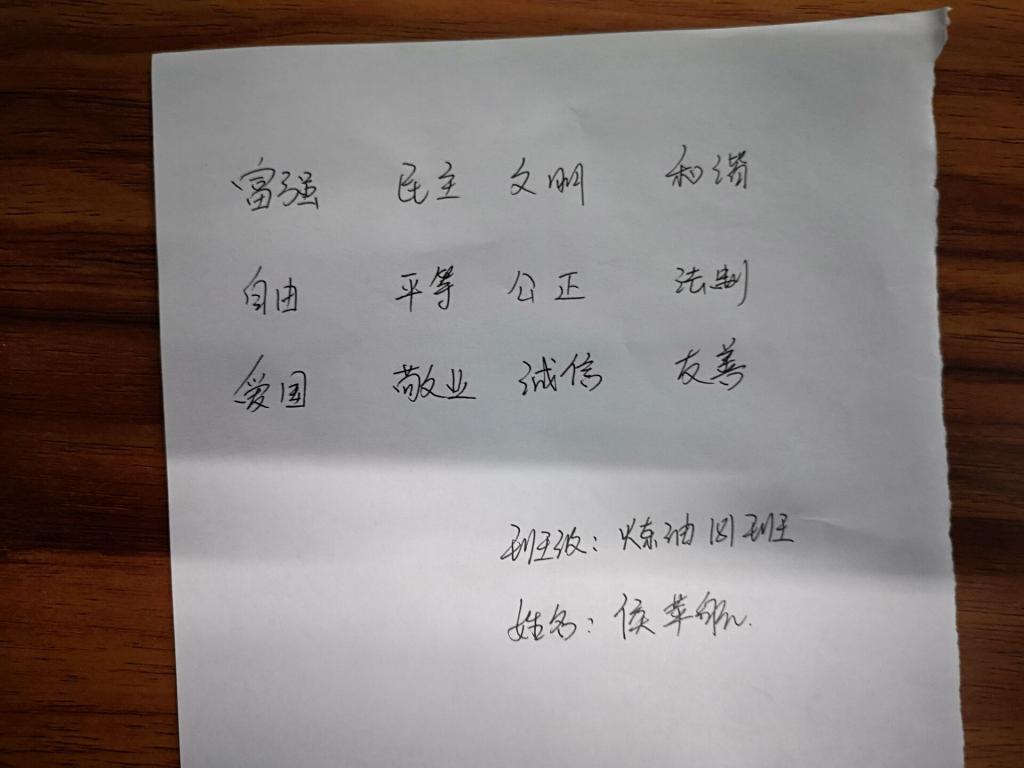 富强 民主 文明 和谐
自由 平等 公正 法制
爱国 敬业 诚信 友善
班级: 炼油四班
姓名: 侯